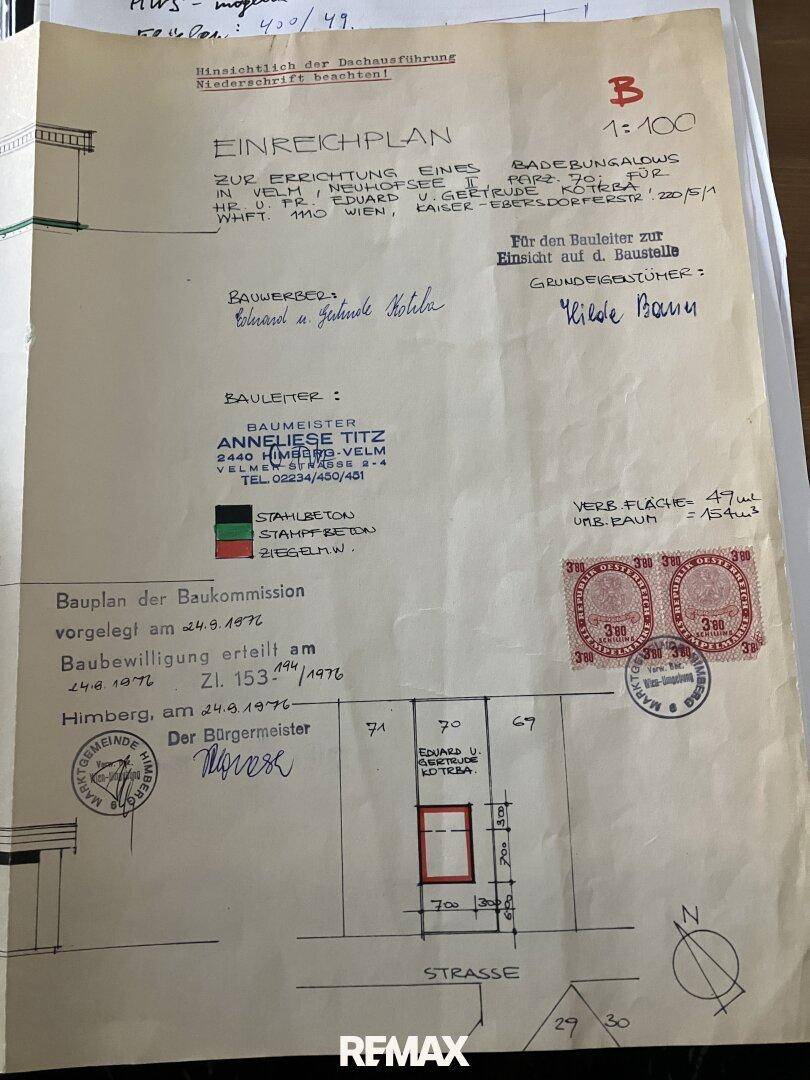 HWS-
400/49.
Hinsichtlich der Dachausführung
Niederschrift beachten!
B
1:100
EINREICHPLAN
ZUR ERRICHTUNG EINES BADEBUNGALOWS
IN VELM, NEUHOFSEE II, PARZ. 70; FÜR
HR. U. FR. EDUARD U. GERTRUDE KOTRBA
WHFT. 1110 WIEN, KAISER-EBERSDORFERSTR. 220/5/1
Für den Bauleiter zur
Einsicht auf d. Baustelle
GRUNDEIGENTÜMER:
Hilde Bauer
BAUWERBER:
Eduard u. Gertrude Kotrba
BAULEITER:
BAUMEISTER
ANNELIESE TITZ
2440 HIMBERG-VELM
VELMER STRASSE 2-4
TEL. 02234/450/451
STAHLBETON
STAMPFBETON
ZIEGELM.W.
VERB. FLÄCHE = 49 m2
UMB. RAUM = 154 m3
3·80 3·80 3·80
REPUBLIK OESTERREICH
REPUBLIK OESTERREICH
3·80 3·80
SCHILLING SCHILLING
STEMPELMARKE
STEMPELMARKE
3·80 3·80 3·80 3·80
MARKTGEMEINDE HIMBERG
Verw. Bez.
Wien-Umgebung
9
Bauplan der Baukommission
vorgelegt am 24.9.1976
Baubewilligung erteilt am
24.9.1976 Zl. 153-194/1976
Himberg, am 24.9.1976
Der Bürgermeister
MARKTGEMEINDE HIMBERG
Verw. Bez.
Wien-Umgebung
9
71 70 69
EDUARD U.
GERTRUDE
KOTRBA.
300
700
700 300
600
STRASSE
N
29 30
RE/MAX